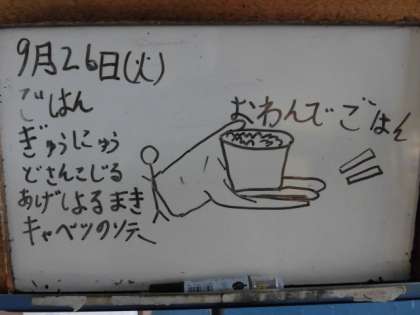 9月26日(火)
ごはん
ぎゅうにゅう
どさんこじる
あげしょるまき
キャベツのソテー
おわんでごはん